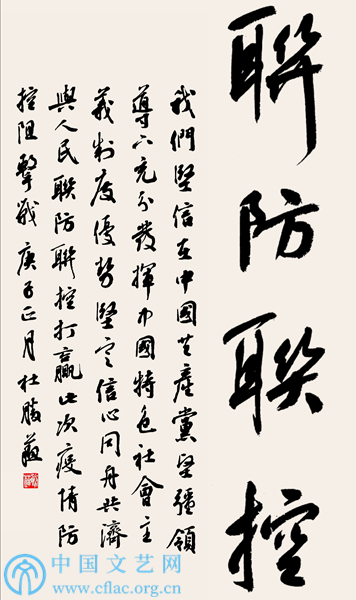 聯防聯控
我們堅信在中國共產黨堅彊領
導下充分發揮中國特色社會主
義制度優勢堅定信心同舟共濟
與人民聯防聯控打贏此次疫情防
控阻擊戰 庚子正月 杜勝
中国文艺网
www.cflac.org.cn